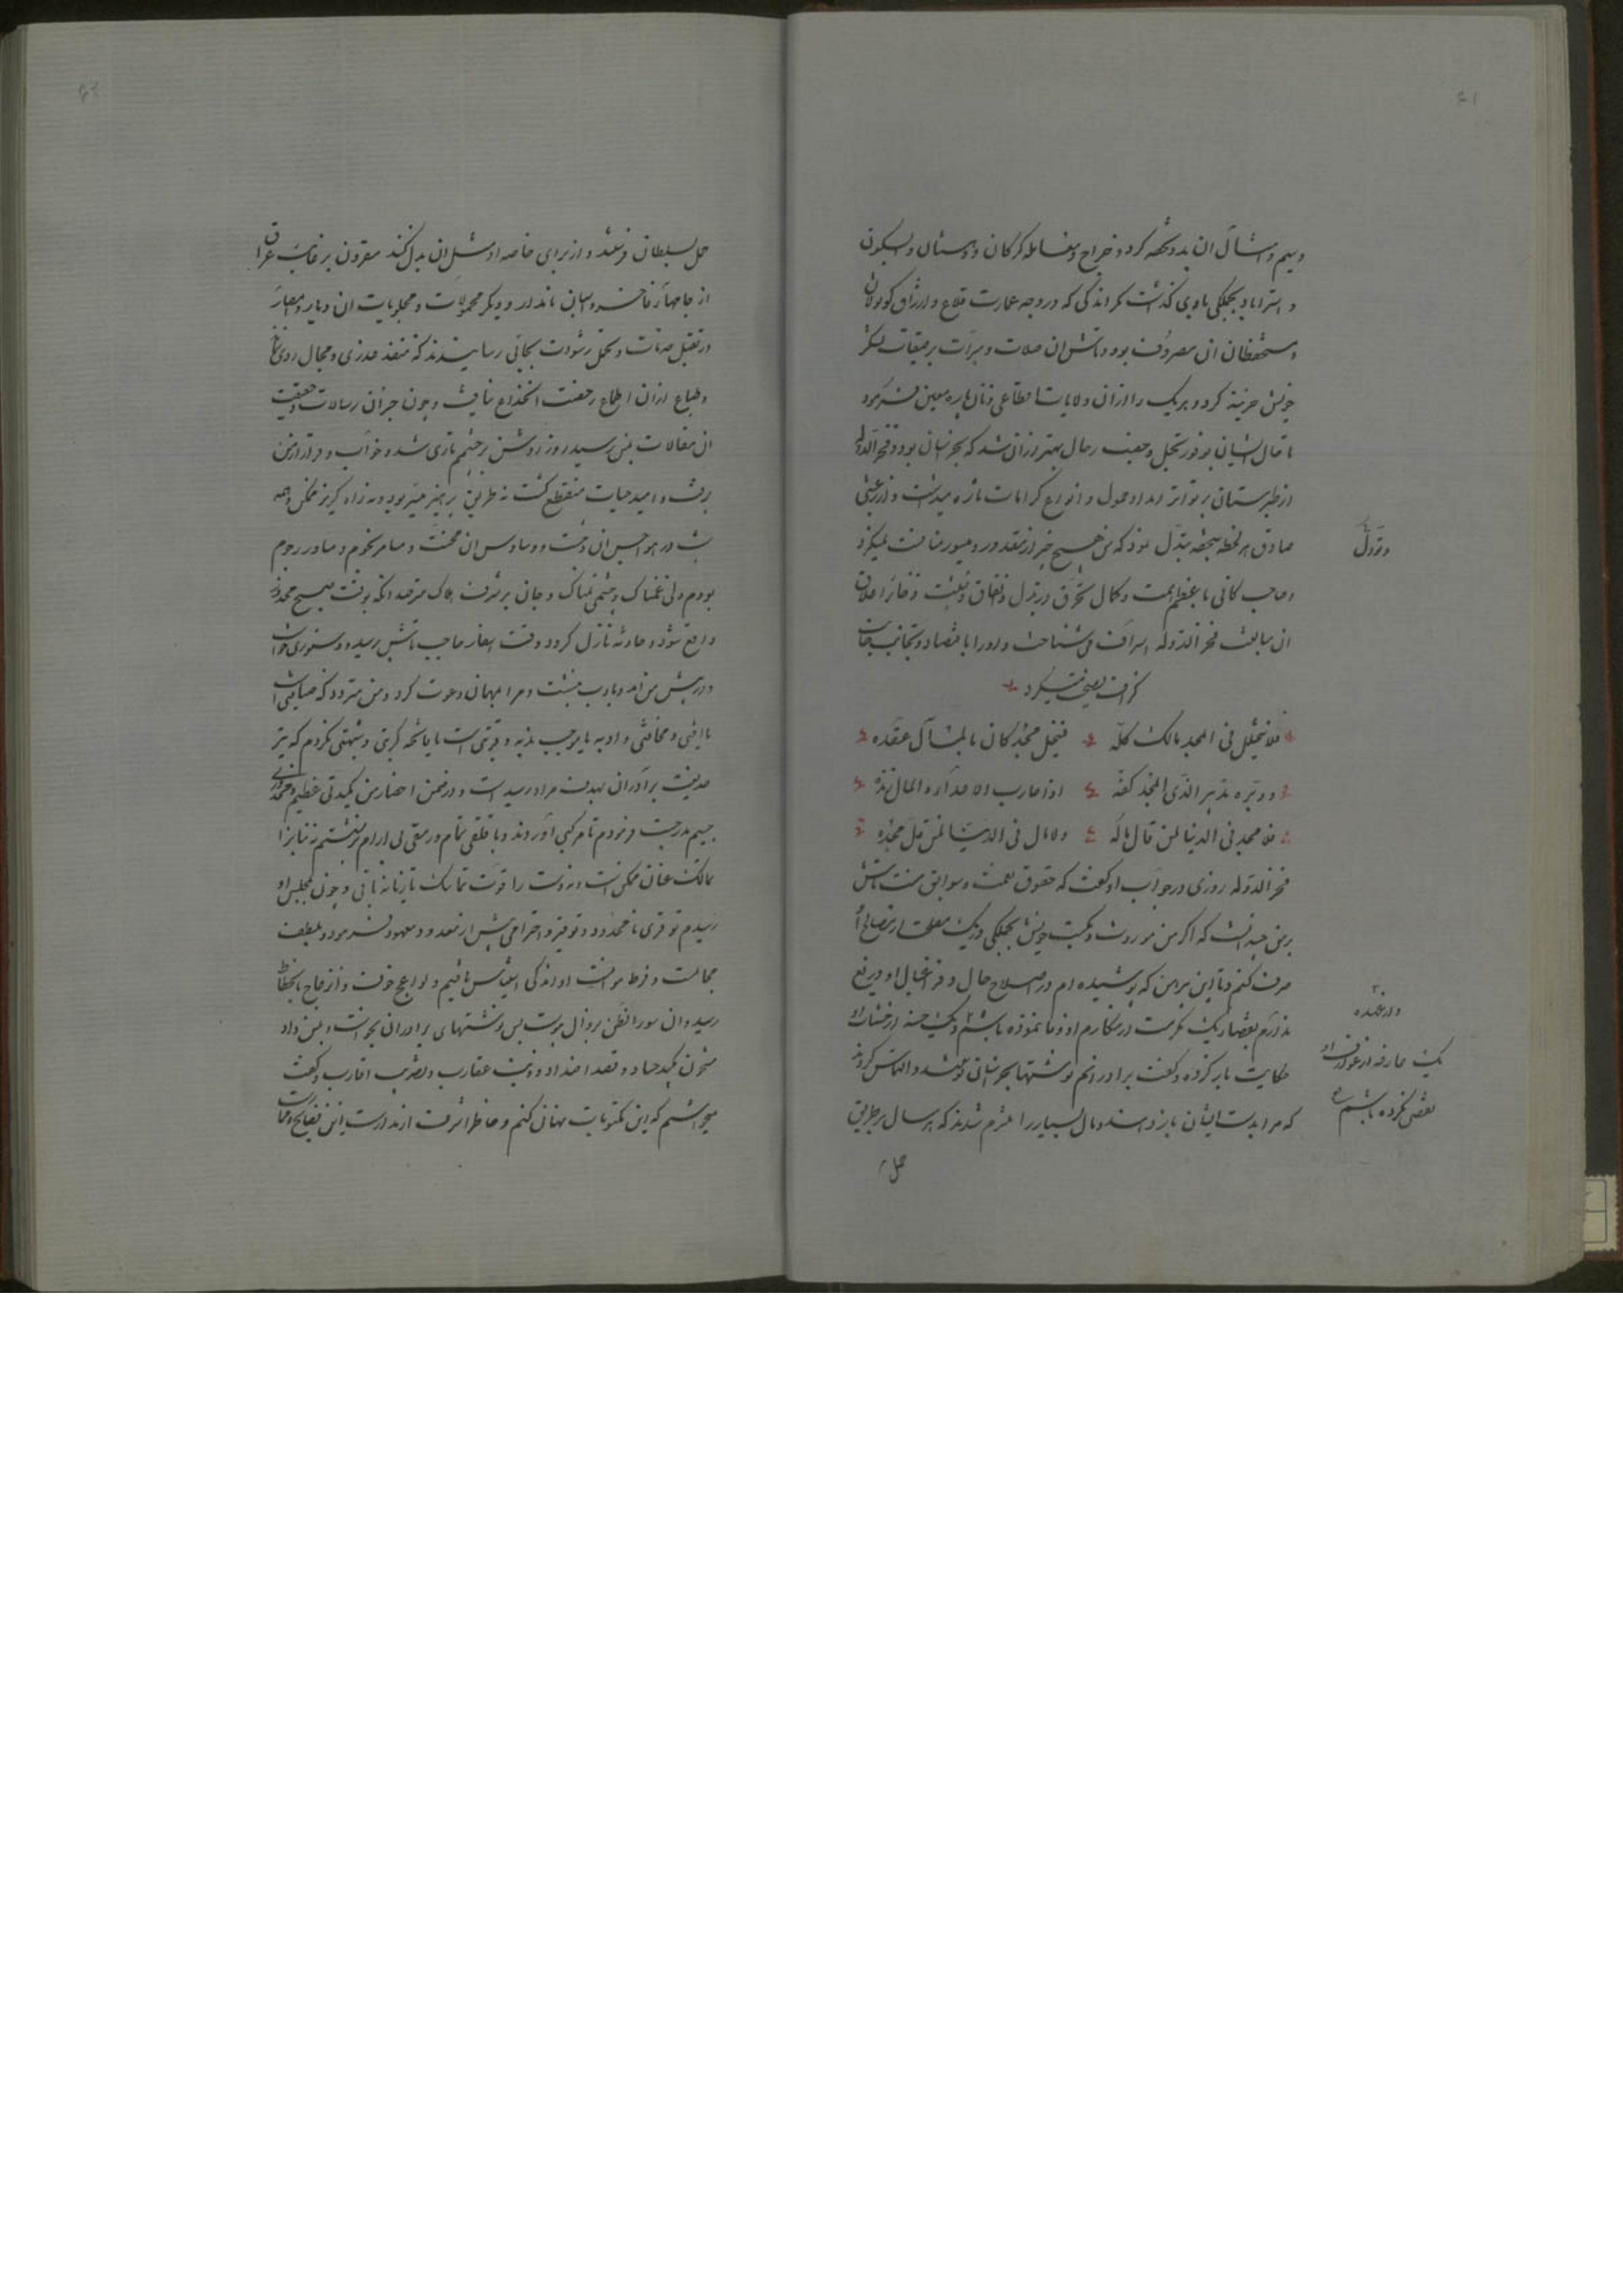 و سیم و امثال آن بدو تحفه کرد و خراج و معامله کرکان و دهستان و ابسکون
و استراباد بجملکی باوی کذاشت مکر اندکی که در وجه عمارت قلاع و ارزاق کوتوالان
و مستحفظان آن مصروف بود و تاش ان صلات و مبرات بر طبقات لشکر
خویش خرینه کرد و هر یک را از ان ولایات اقطاعی و نان پاره معین فرمود
تا حال ایشان بوفور تجمل و خصب رحال بهتر از ان شد که بخراسان بود و فخر الدوله
از طبرستان بتواتر امداد حمول و انواع کرامات تازه میداشت و از رغبتی
صادق هر لحظه بتحفه تبدل نمود که من هیچ چیز از مقدور و میسور مضایقت نمیکرد
و صاحب کافی با عظم همت و کمال تخرق در بذل و انفاق و نفیست ذخایر اعلاق
ان مبالغت فخر الدوله اسراف می شناخت و او را باقتصاد و تجانب جانب
کزاف نصیحت میکرد
فلا تنحلل فی المجد مالک کله فینحل مجد کان بالمال عقده
و دبره تدبیر الذی المجد کفه اذا حارب الاعداء و المال زنده
فلا مجد فی الدنیا لمن قل ماله و لا مال فی الدنیا لمن قل مجده
فخر الدوله روزی در جواب او کفت که حقوق نعمت و سوابق منت تاش
بر من چندانست که اکر من موروث و مکتسب خویش بجملکی در یک مصلحت از مصالح او
صرف کنم و تا این پیرهن که پوشیده ام در صلاح حال و فراغ بال او دریغ
ندارم بقضاء یک مکرمت از مکارم او وفا ننموده باشم و یک حسنه از حسنات او
حکایت باز کرد و کفت برادرانم نوشتها بخراسان نوشتند و التماس کردند
که مرا بدست ایشان باز دهند و مال بسیار را ملتزم شدند که هر سال بر طریق
حمل
و تودل
و از عهده
یک عارفه از عوارف او
تقضی نکرده باشم
حمل بسلطان فرستند و از برای خاصه او مثل ان بذل کنند مقرون برغایب عراق
از جامهاء فاخر و اسبان نامدار و دیکر محمولات و مجلوبات ان دیار و امصار
و در تقبل ضمانات و تحمل رشوات بجائی رسانیدند که منفذ عذری و مجال
و طباع از ان اطماع رخصت انخداع نیافت و چون خبر ان رسالات و حقیقت
ان مقالات بمن رسید روز روشن بر چشمم تاری شد و خواب و قرار از من
برفت و امید حیات منقطع کشت نه طریق پرهیز میسر بود و نه راه کریز ممکن و همه
شب در هواجس ان وحشت و وساوس ان محنت و مسامر نجوم و مساور رجوم
بودم دلی غمناک و چشمی نمناک و جان بر شرف هلاک مترصد انکه بوقت صبح محذور
واقع شود و حادثه نازل کردد وقت اسفار حاجب تاش برسید و دستوری خواست
و در پیش من آمد و بادب بنشست و مرا بمهمان دعوت کرد و من متردد که ضیافتی است
یا افتی و مخافتی و ادبه یا موجب ندبه و قربتی است یا پاشحه کربتی و شبهتی نکردم که تیر
مدیقت برادران بهدف مراد رسیده است و در ضمن احضار من مکیدتی عظیم و محذوری
جسیم مدرجست فرمودم تا مرکبی آوردند و با قلقی تمام و رمقی بی ارام بر نشستم نه بنانرا
تمالک عنان ممکن است و نه دست را قوت تماسک تازیانه باقی و چون بمجلس او
رسیدم توقری نامحدود و توقیر و احترامی بیش از معدود و معهود فرمود و بلطف
مجالست و فرط موانست او اندکی استیناس یافتیم و لواعج خوف و انزعاج بانحطاط
رسید و ان سوء الظن بزوال پیوست پس نوشتهای برادران بخواست و بمن داد
مشحون بکید حساد و قصد اضداد و دبیب عقارب و تضریب اقارب و کفت
میخواستم که این مکتوبات پنهان کنم و خاطر اشرفت از ندارت این فضایح و قباحت